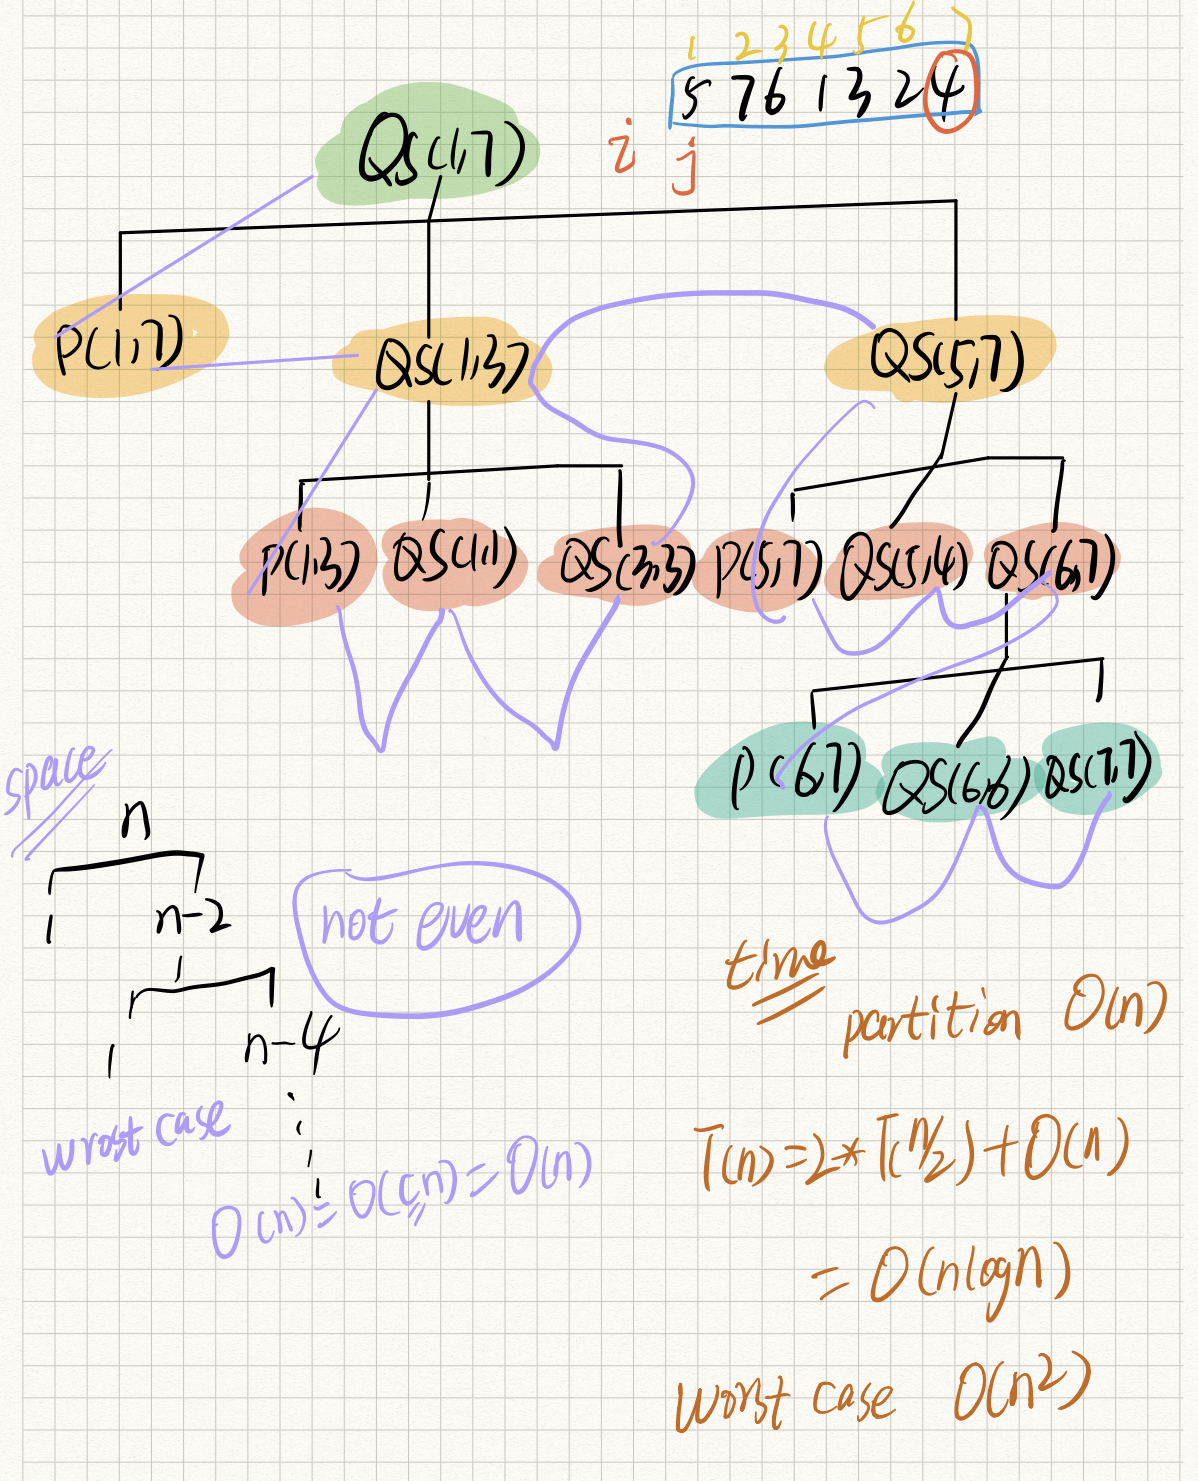 1 2 3 4 5 6 7
5 7 6 1 3 2 4
QS(1,7)
i j
P(1,7) QS(1,3) QS(5,7)
P(1,3) QS(1,1) QS(3,3) P(5,7) QS(5,4) QS(6,7)
P(6,7) QS(6,6) QS(7,7)
space
n
1 n-2
1 n-4
not even
wrost case
O(n) = O(cn) = O(n)
time
partition O(n)
T(n)=2*T(n/2)+O(n)
= O(nlogn)
worst case O(n²)